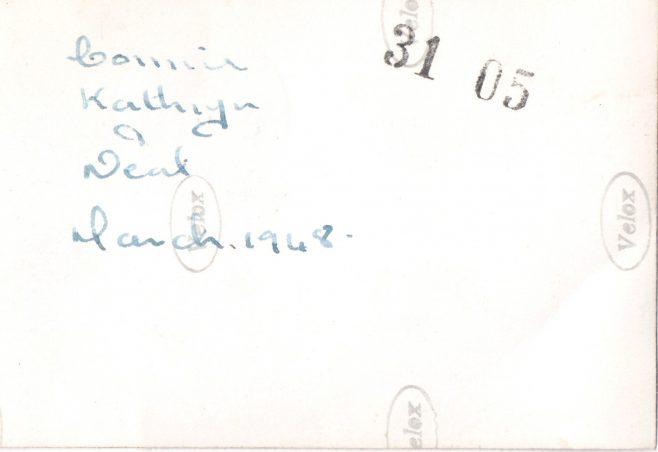 Connie
Kathryn
&
Neal
March. 1948-
31 05
Velox
Velox
Velox
elox